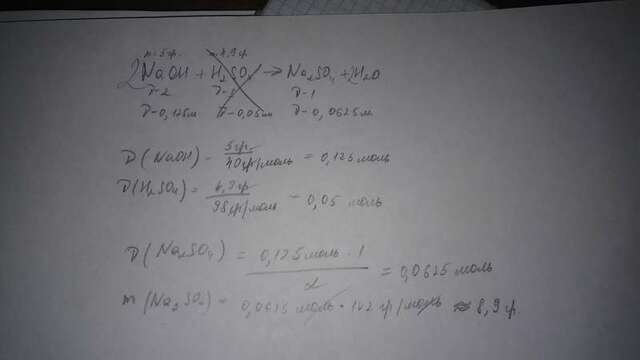 m-5 гр. 4,9 гр
2NaOH + H₂SO₄ → Na₂SO₄ + H₂O
ν-2 ν-1 ν-1
ν-0,125м ν-0,05м ν-0,0625м
ν(NaOH) - 5гр / 40гр/моль = 0,125 моль
ν(H₂SO₄) = 4,9гр / 98гр/моль - 0,05 моль
ν(Na₂SO₄) = 0,125 моль · 1 / 2 = 0,0625 моль
m(Na₂SO₄) = 0,0625 моль · 142 гр/моль ≈ 8,9 гр